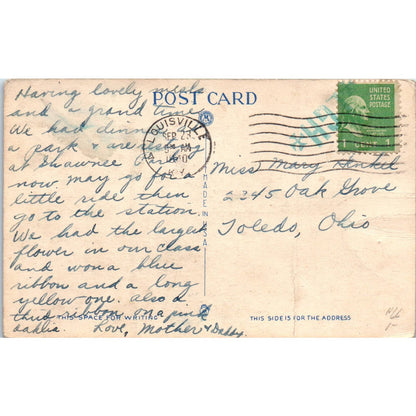 POST CARD
Having lovely meals
and a grand time.
We had dinner
a park & are
at Shawnee Park
now, may go for a
little ride then
go to the station.
We had the largest
flower in our class
and won a blue
ribbon and a long
yellow one. also a
third ribbon on a pink
dahlia. Love, Mother & Daddy.
THIS SPACE FOR WRITING
MADE IN U.S.A.
LOUISVILLE
SEP 23
AM
UNITED
STATES
POSTAGE
1
Miss Mary
2345 Oak Grove
Toledo, Ohio
THIS SIDE IS FOR THE ADDRESS